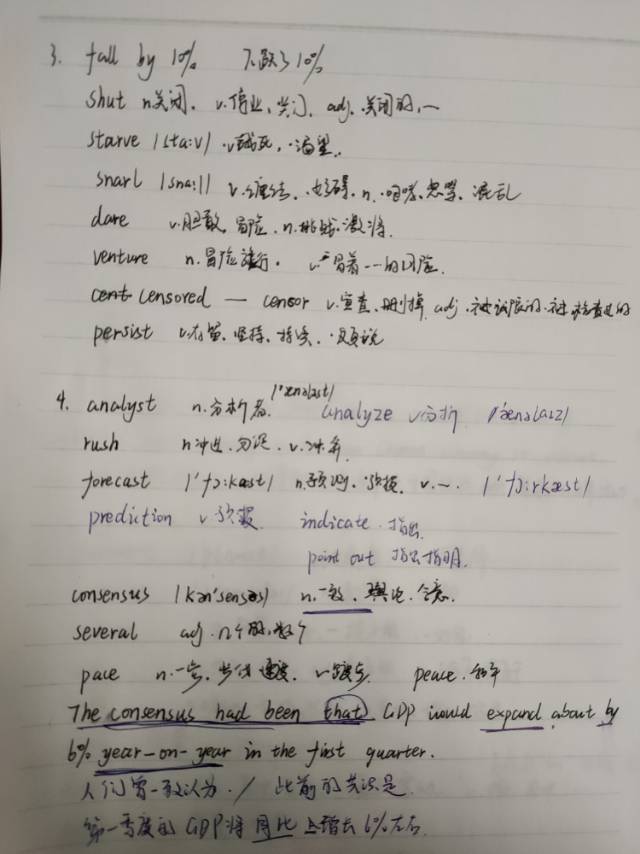 3. fall by 10% 下跌了10%
shut n关闭. v.停业、关门. adj.关闭的,一
starve /sta:v/ ·v饿死,·渴望.
snarl /sna:l/ v.缠结. n.咆哮、怒骂、混乱
dare v.胆敢、冒险. n.挑战.激将.
venture n.冒险 v.冒着……的风险.
censored — censor v.审查、删掉 adj.被检查过的
persist v.存留、坚持、持续、·反复说
4. analyst n.分析者. /'ænəlɪst/ analyze v分析 /'ænəlaɪz/
rush n冲进.匆忙. v.冲奔
forecast /'fɔ:kæst/ n.预测.预报. v.~. /'fɔ:rkæst/
prediction v预报 indicate.指出
point out 指出指明.
consensus /kən'sensəs/ n.一致.舆论.合意.
several adj.几个的,数个
pace n.一步,步伐 速度. v踱步 peace.和平
The consensus had been that GDP would expand about by
6% year-on-year in the first quarter.
人们曾一致认为·/ 此前的共识是
第一季度的GDP将同比上增长6%左右.